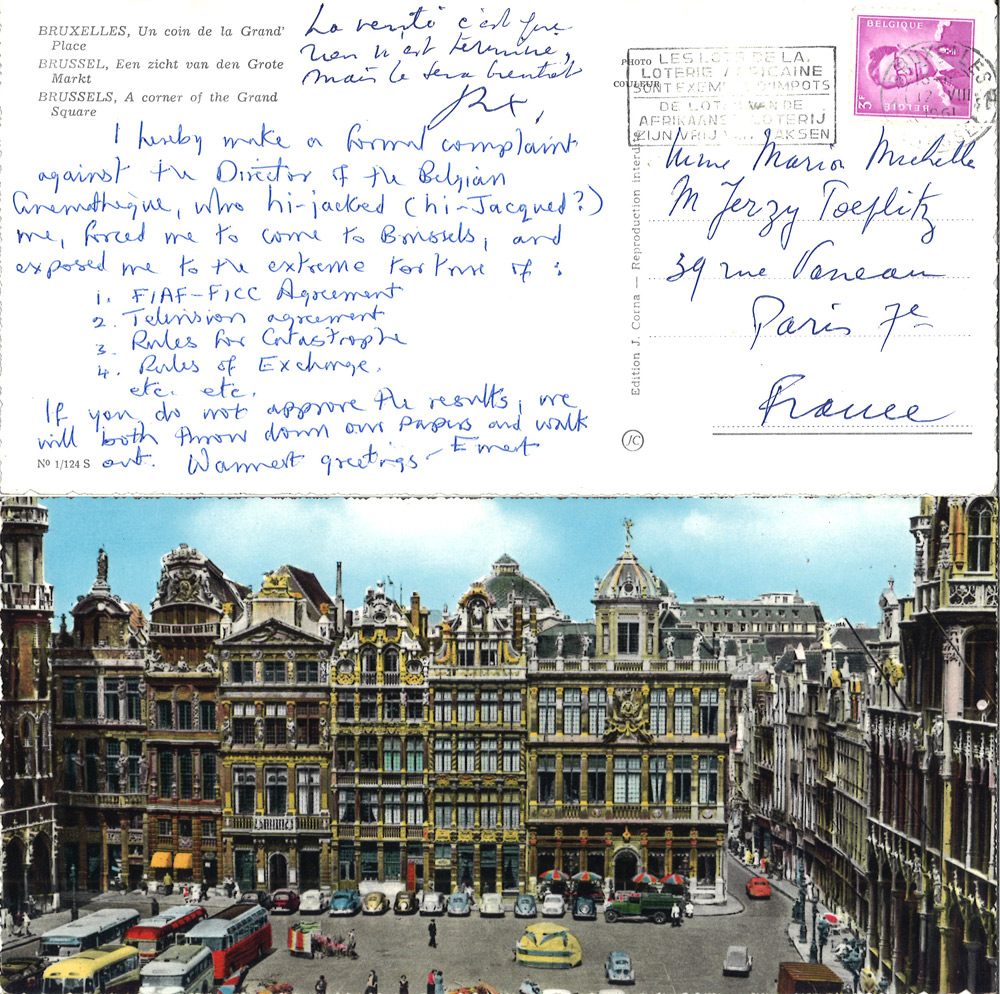 BRUXELLES, Un coin de la Grand'
Place
BRUSSEL, Een zicht van den Grote
Markt
BRUSSELS, A corner of the Grand
Square
La vérité c'est que
rien n'est terminé,
mais le sera bientôt
PHOTO
COULEUR
LES LOTS DE LA
LOTERIE AFRICAINE
SONT EXEMPTS D'IMPOTS
DE LOTEN VAN DE
AFRIKAANSE LOTERIJ
ZIJN VRIJ VAN TAKSEN
BELGIQUE
3F
BELGIE
VIII
1961
I hereby make a formal complaint
against the Director of the Belgian
Cinematheque, who hi-jacked (hi-Jacqued?)
me, forced me to come to Brussels, and
exposed me to the extreme torture of :
1. FIAF-FICC Agreement
2. Television agreement
3. Rules for Catastrophe
4. Rules of Exchange.
etc. etc.
If you do not approve the results, we
will both throw down our papers and walk
out. Warmest greetings - Ernest
Nº 1/124 S
Edition J. Corna — Reproduction interdite
JC
Mme Marion Michelle
M Jerzy Toeplitz
39 rue Vaneau
Paris 7e
France